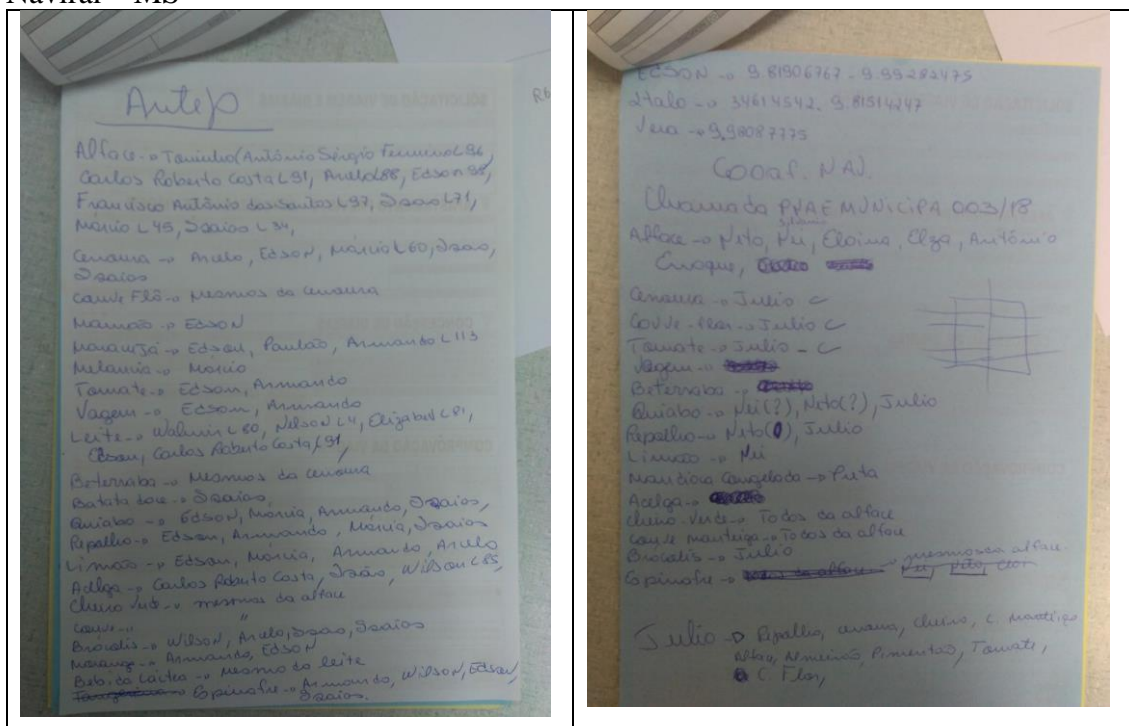 Naviraí – MS
Antep
Alface -> Toninho (Antônio Sérgio L96,
Carlos Roberto Costa L91, Arcelo L88, Edson 98,
Francisco Antônio dos Santos L97, Isaao L71,
Márcio L49, Isaias L34,
Cenoura -> Arcelo, Edson, Márcio L60, Isaao,
Isaias
Couve Flô -> Mesmos da cenoura
Mamão -> Edson
Maracujá -> Edson, Paulão, Armando L113
Melancia -> Márcio
Tomate -> Edson, Armando
Vagem -> Edson, Armando
Leite -> Walmir L80, Nelson L4, Elizabet L81,
Edson, Carlos Roberto Costa L91,
Beterraba -> Mesmos da cenoura
Batata doce -> Isaias,
Quiabo -> Edson, Márcia, Armando, Isaias,
Repolho -> Edson, Armando, Márcia, Isaias
Limão -> Edson, Márcia, Armando, Arcelo
Acelga -> Carlos Roberto Costa, Isaão, Wilson L85,
Cheiro Verde -> mesmos da alface
Couve -> "
Brócolis -> Wilson, Arcelo, Isaao, Isaias
Morango -> Armando, Edson
Bebida Láctea -> Mesmo do leite
Espinafre -> Armando, Wilson, Edson,
Isaias.
EDSON -> 9.81906767 - 9.99282475
Italo -> 34614542. 9.81514247
Vera -> 9.98087775
Cooaf. NAV.
Chamada PNAE MUNICIPA 003/18
Alface -> Neto, Nei, Eloina, Elza, Antônio
Enoque,
Cenoura -> Julio C
Couve-flor -> Julio C
Tomate -> Julio - C
Vagem ->
Beterraba ->
Quiabo -> Nei(?), Neto(?), Julio
Repolho -> Neto( ), Julio
Limão -> Nei
Mandioca Congelada -> Puta
Acelga ->
Cheiro-Verde -> Todos da alface
Couve manteiga -> Todos da alface
Brócolis -> Julio
Espinafre -> todos da alface mesmos da alface
Julio -> Repolho, cenoura, cheiro, C. Manteiga
Alface, Almeirão, Pimentão, Tomate,
C. Flor,